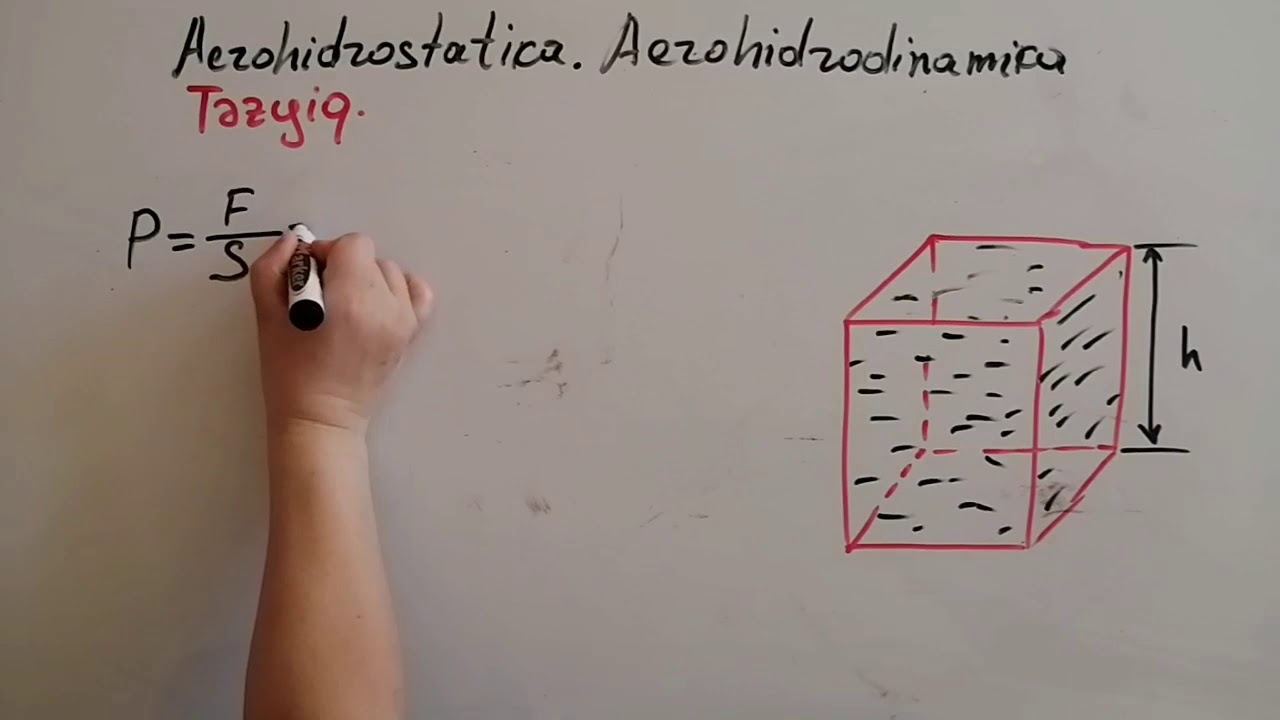 Aerohidrostatica. Aerohidrodinamika
Təzyiq.
P = F/S
h
Marker